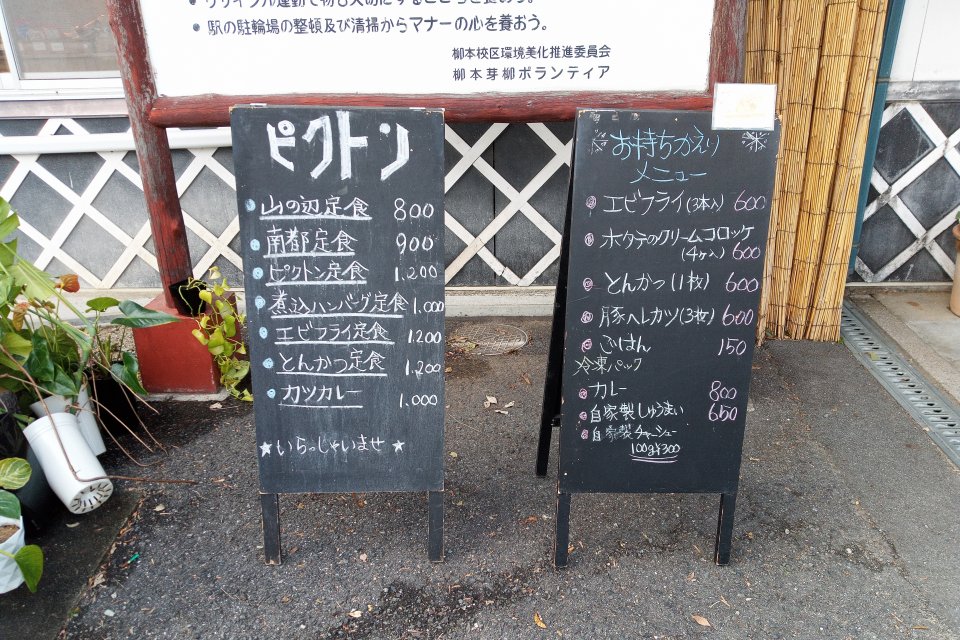 ・リサイクル運動で物を大切にすることを培おう。
・駅の駐輪場の整頓及び清掃からマナーの心を養おう。
柳本校区環境美化推進委員会
柳本芽柳ボランティア
ピクトン
山の辺定食 800
南都定食 900
ピクトン定食 1,200
煮込ハンバーグ定食 1,000
エビフライ定食 1,200
とんかつ定食 1,200
カツカレー 1,000
★いらっしゃいませ★
お持ちかえり
メニュー
エビフライ(3本入) 600
ホタテのクリームコロッケ
(4ヶ入) 600
とんかつ(1枚) 600
豚ヘレカツ(3枚) 600
ごはん 150
冷凍パック
カレー 800
自家製しゅうまい 650
自家製チャーシュー
100g¥300